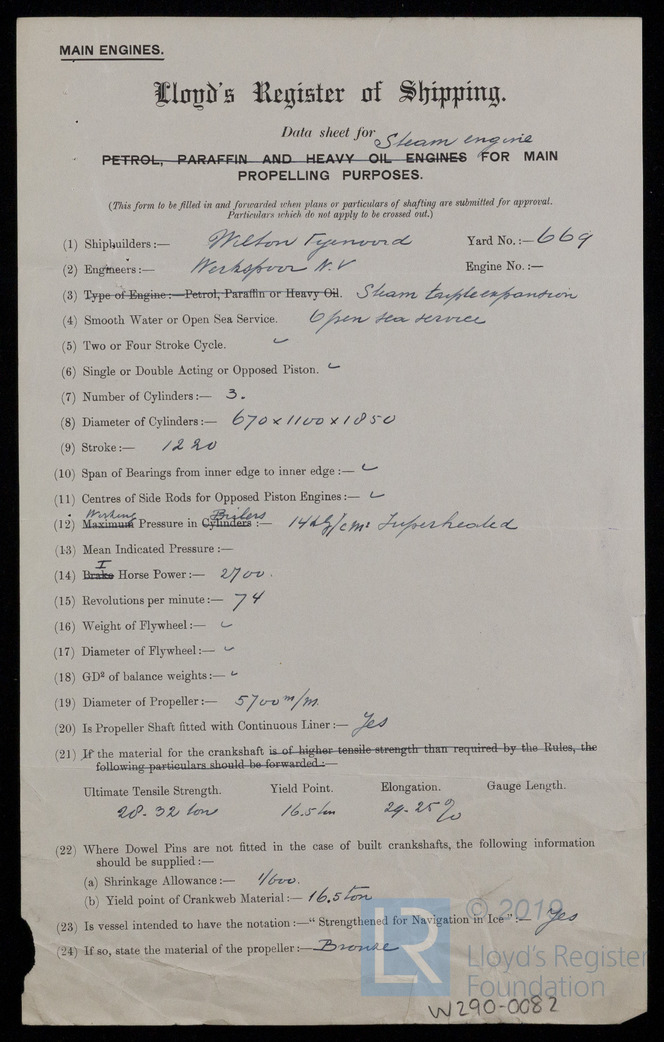 MAIN ENGINES.
Lloyd's Register of Shipping.
Data sheet for Steam engine
PETROL, PARAFFIN AND HEAVY OIL ENGINES FOR MAIN
PROPELLING PURPOSES.
(This form to be filled in and forwarded when plans or particulars of shafting are submitted for approval.
Particulars which do not apply to be crossed out.)
(1) Shipbuilders:— Wilton Fyenoord Yard No.:— 669
(2) Engineers:— Werkspoor N.V Engine No.:—
(3) Type of Engine:—Petrol, Paraffin or Heavy Oil. Steam triple expansion
(4) Smooth Water or Open Sea Service. Open sea service
(5) Two or Four Stroke Cycle.
(6) Single or Double Acting or Opposed Piston.
(7) Number of Cylinders:— 3.
(8) Diameter of Cylinders:— 670 x 1100 x 1850
(9) Stroke:— 1220
(10) Span of Bearings from inner edge to inner edge:—
(11) Centres of Side Rods for Opposed Piston Engines:—
Working Boilers
(12) Maximum Pressure in Cylinders:— 14 kg/cm² Superheated
(13) Mean Indicated Pressure:—
I
(14) Brake Horse Power:— 2700.
(15) Revolutions per minute:— 74
(16) Weight of Flywheel:—
(17) Diameter of Flywheel:—
(18) GD² of balance weights:—
(19) Diameter of Propeller:— 5700 m/m.
(20) Is Propeller Shaft fitted with Continuous Liner:— Yes
(21) If the material for the crankshaft is of higher tensile strength than required by the Rules, the
following particulars should be forwarded:—
Ultimate Tensile Strength. Yield Point. Elongation. Gauge Length.
28-32 tons 16.5 ton 29-25%
(22) Where Dowel Pins are not fitted in the case of built crankshafts, the following information
should be supplied:—
(a) Shrinkage Allowance:— 1/600.
(b) Yield point of Crankweb Material:— 16.5 ton
(23) Is vessel intended to have the notation:—"Strengthened for Navigation in Ice":— Yes
(24) If so, state the material of the propeller:— Bronze
LR © 2019
Lloyd's Register
Foundation
W290-0082